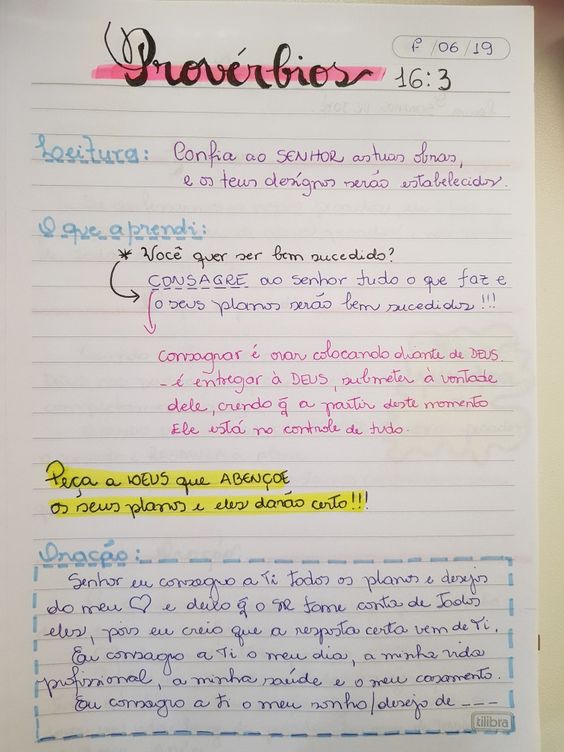 Provérbios 16:3
/06/19
Leitura: Confia ao SENHOR as tuas obras,
e os teus desígnos serão estabelecidos.
O que aprendi:
* Você quer ser bem sucedido?
CONSAGRE ao senhor tudo o que faz e
o seus planos serão bem sucedidos!!!
Consagrar é orar colocando diante de DEUS.
- é entregar à DEUS, submeter à vontade
dele, crendo q̃ a partir deste momento
Ele está no controle de tudo.
Peça a DEUS que ABENÇOE
os seus planos e eles darão certo!!!
Oração:
Senhor eu consagro a Ti todos os planos e desejos
do meu ♡ e deixo q̃ o SR tome conta de todos
eles, pois eu creio que a resposta certa vem de Ti.
Eu consagro a Ti o meu dia, a minha vida
profissional, a minha saúde e o meu casamento.
Eu consagro a ti o meu sonho/desejo de ---
tilibra